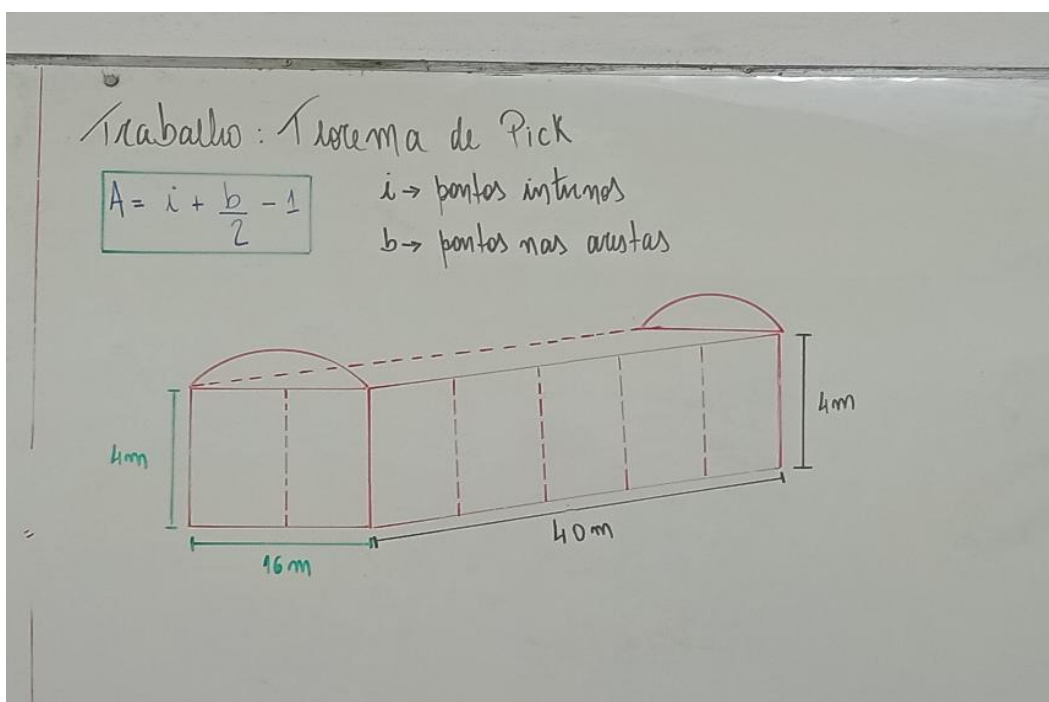 Trabalho: Tiorema de Pick
A = i + b/2 - 1
i → pontos internos
b → pontos nas arestas
4m
4m
40m
16m